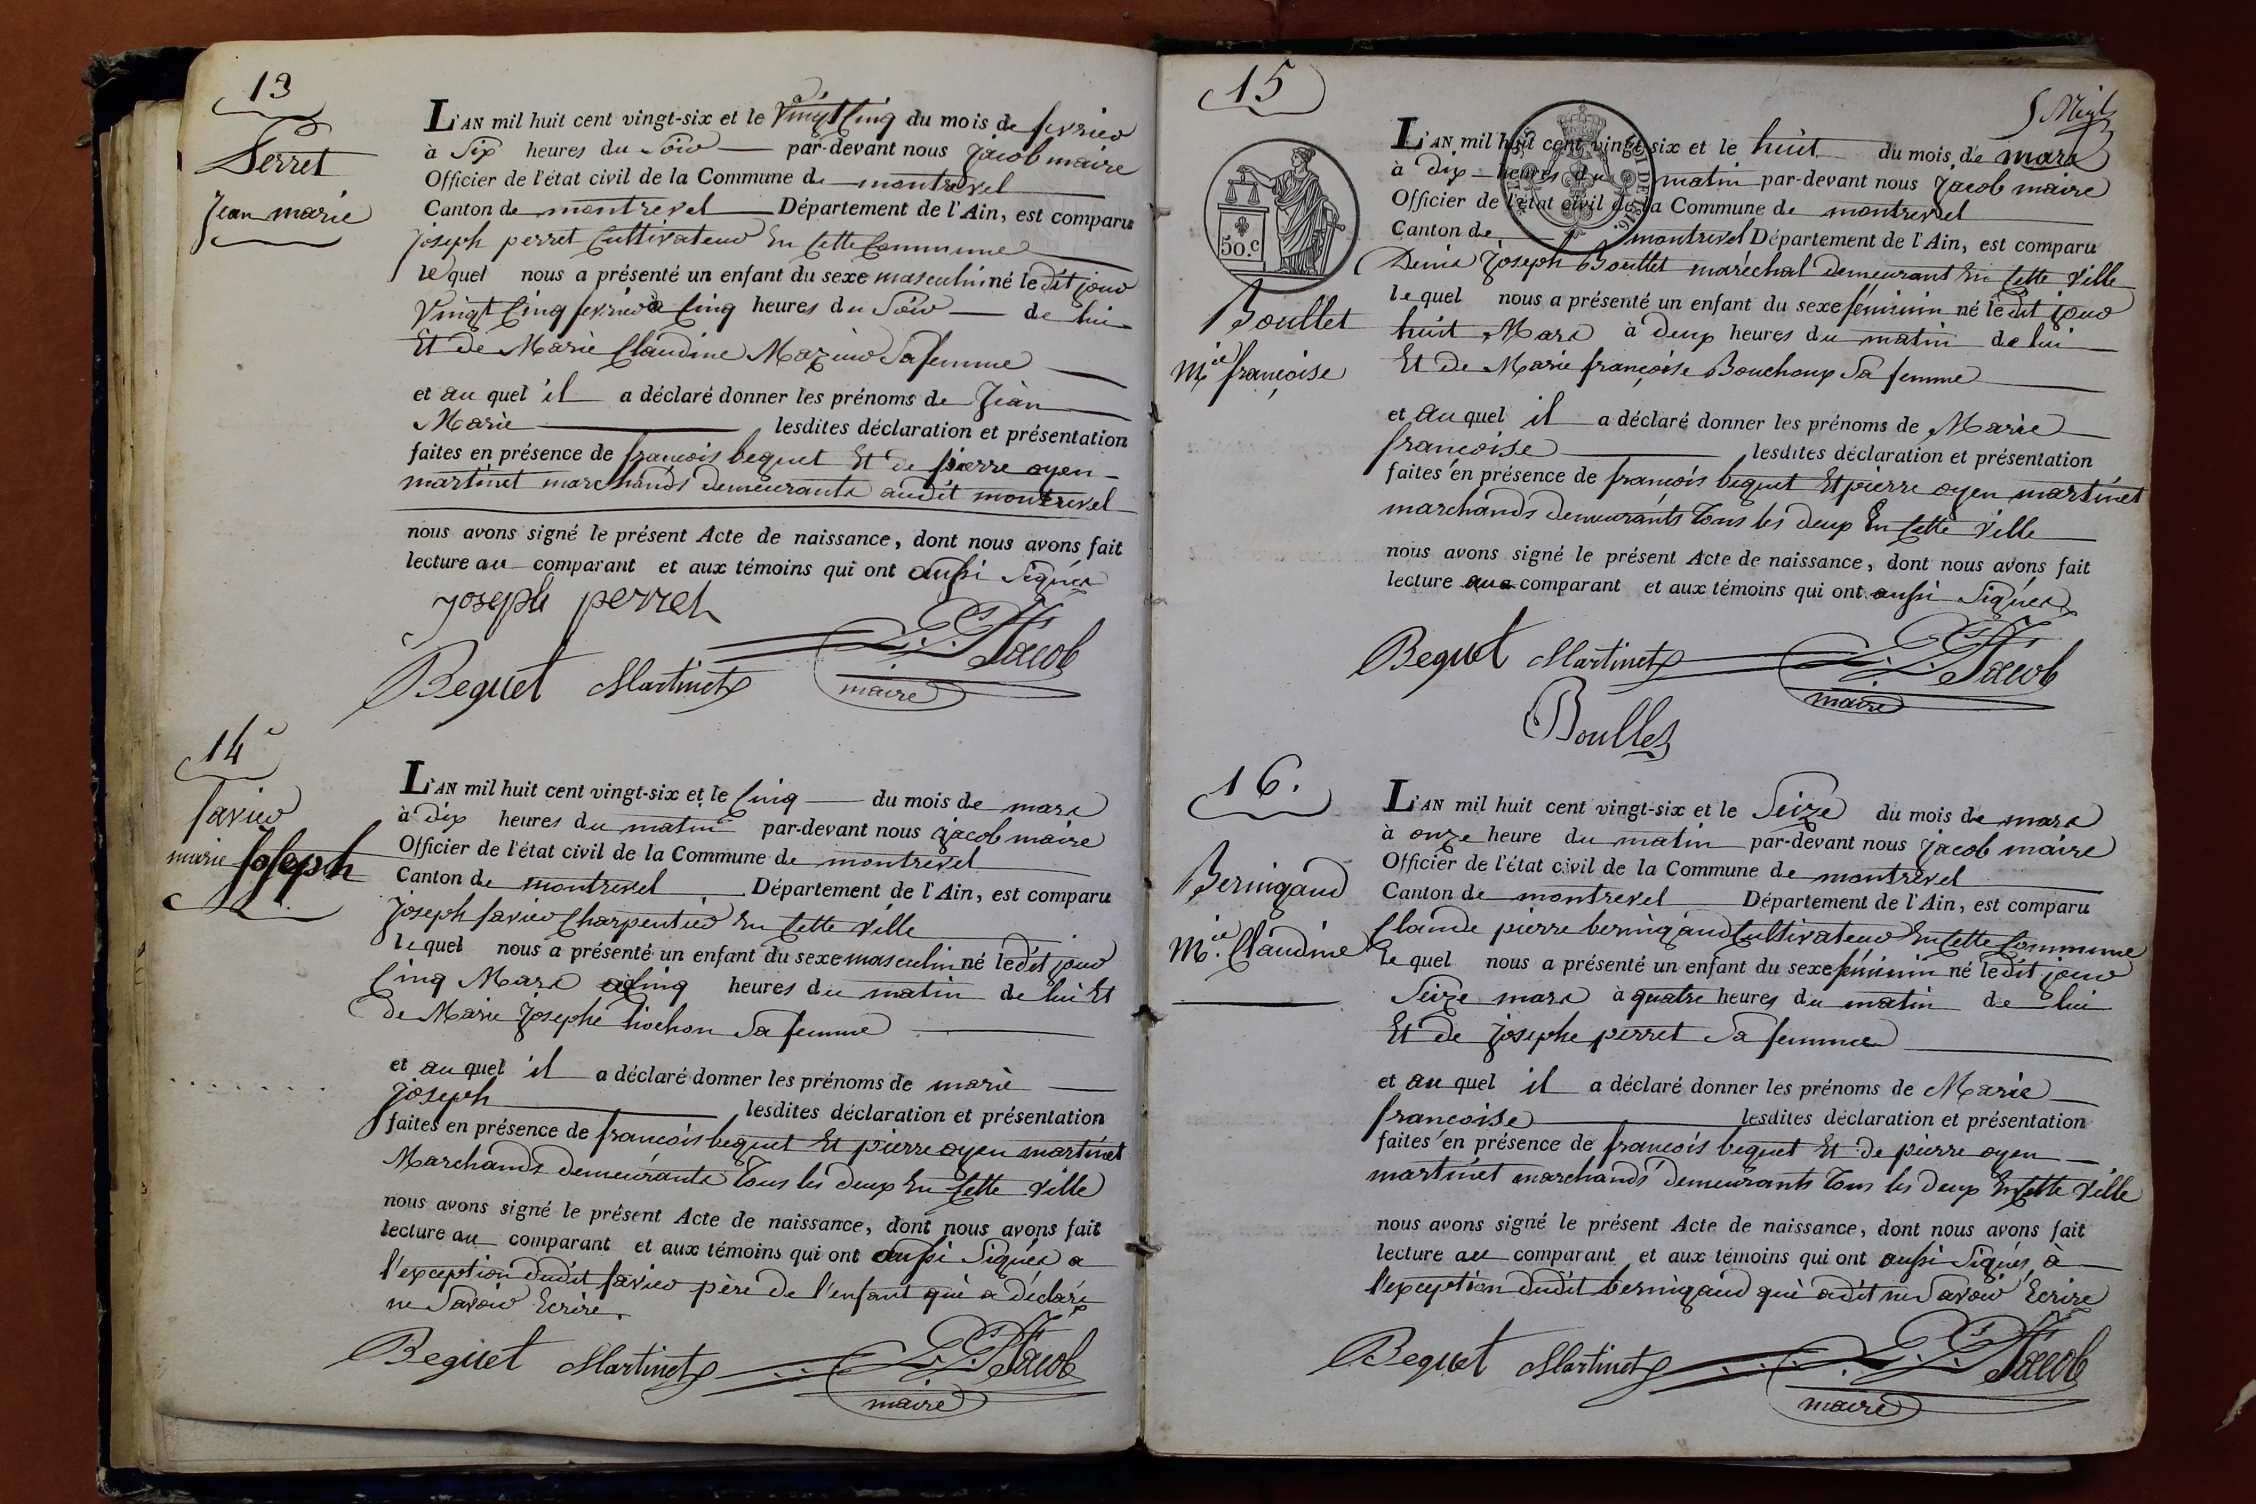 13
Perret
Jean marie
L'AN mil huit cent vingt-six et le Vingt Cinq du mois de fevrier
à Six heures du Soir par-devant nous jacob maire
Officier de l'état civil de la Commune de montrevel
Canton de montrevel Département de l'Ain, est comparu
joseph perret Cultivateur En Cette Commune
lequel nous a présenté un enfant du sexe masculin né ledit jour
Vingt Cinq fevrier à Cinq heures du Soir de lui
Et de Marie Claudine Mazuir Sa femme
et au quel il a déclaré donner les prénoms de Jean
Marie lesdites déclaration et présentation
faites en présence de francois bequet Et de pierre oyen
martinet marchands demeurants audit montrevel
nous avons signé le présent Acte de naissance, dont nous avons fait
lecture au comparant et aux témoins qui ont aussi Signés
joseph perret
Bequet Martinet Jacob
maire
14e
favier
marie Joseph
L'AN mil huit cent vingt-six et le Cinq du mois de mars
à dix heures du matin par-devant nous jacob maire
Officier de l'état civil de la Commune de montrevel
Canton de montrevel Département de l'Ain, est comparu
Joseph favier Charpentier En Cette Ville
lequel nous a présenté un enfant du sexe masculin né ledit jour
Cinq Mars à Cinq heures du matin de lui Et
de Marie Josephe Sa femme
et au quel il a déclaré donner les prénoms de marie
joseph lesdites déclaration et présentation
faites en présence de francois bequet Et pierre oyen martinet
Marchands demeurants Tous les deux En Cette Ville
nous avons signé le présent Acte de naissance, dont nous avons fait
lecture au comparant et aux témoins qui ont aussi Signés a
l'exception dudit favier père de l'enfant qui a déclaré
ne Savoir Ecrire.
Bequet Martinet Jacob
maire
15
50.c
Boullet
Mie françoise
L'AN mil huit cent vingt-six et le huit du mois de mars
à dix heures du matin par-devant nous jacob maire
Officier de l'état civil de la Commune de montrevel
Canton de montrevel Département de l'Ain, est comparu
Denis Joseph Boullet maréchal demeurant En Cette Ville
lequel nous a présenté un enfant du sexe féminin né ledit jour
huit Mars à deux heures du matin de lui
Et de Marie françoise Bouchoux Sa femme
et au quel il a déclaré donner les prénoms de Marie
francoise lesdites déclaration et présentation
faites en présence de francois bequet Et pierre oyen martinet
marchands demeurants Tous les deux En Cette Ville
nous avons signé le présent Acte de naissance, dont nous avons fait
lecture au comparant et aux témoins qui ont aussi Signés
Bequet Martinet Jacob
maire
Boullet
16.
Bernigaud
Mie. Claudine
L'AN mil huit cent vingt-six et le Seize du mois de mars
à onze heure du matin par-devant nous jacob maire
Officier de l'état civil de la Commune de montrevel
Canton de montrevel Département de l'Ain, est comparu
Claude pierre bernigaud Cultivateur En Cette Commune
le quel nous a présenté un enfant du sexe féminin né ledit jour
Seize mars à quatre heures du matin de lui
Et de josephe perret Sa femme
et au quel il a déclaré donner les prénoms de Marie
francoise lesdites déclaration et présentation
faites en présence de francois bequet Et de pierre oyen
martinet marchands demeurants Tous les deux En Cette Ville
nous avons signé le présent Acte de naissance, dont nous avons fait
lecture au comparant et aux témoins qui ont aussi Signés à
l'exception dudit bernigaud qui a dit ne Savoir Ecrire
Bequet Martinet Jacob
maire